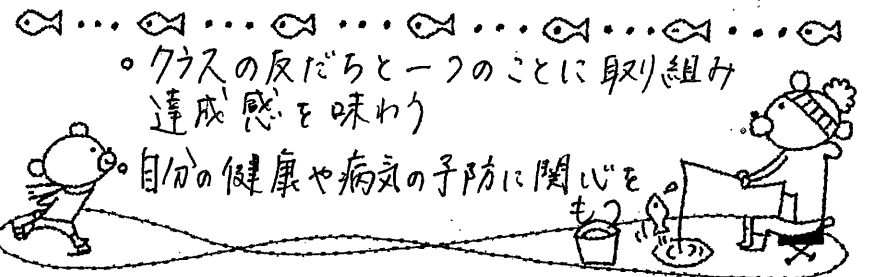 。クラスの友だちと一つのことに取り組み
達成感を味わう
。自分の健康や病気の予防に関心を
もつ